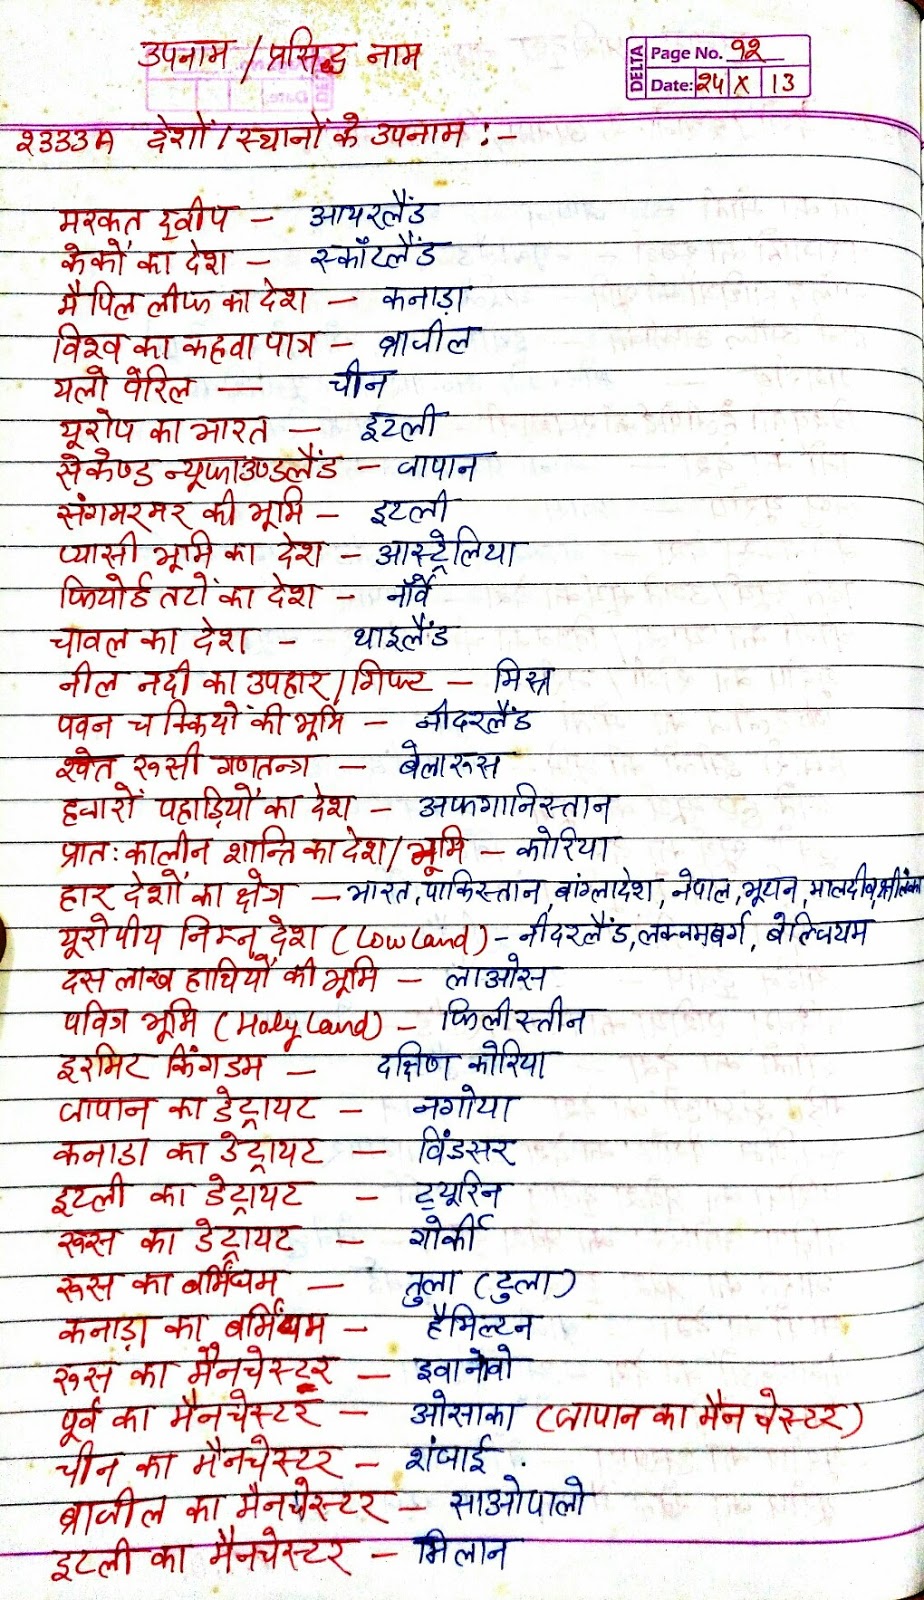 उपनाम / प्रसिद्ध नाम
DELTA
Page No. 92
Date: 24 X 13
२३३३A देशों / स्थानों के उपनाम :-
मरकत द्वीप - आयरलैंड
केकों का देश - स्कॉटलैंड
मैपिल लीफ का देश - कनाडा
विश्व का कहवा पात्र - ब्राजील
यलो पेरिल - चीन
यूरोप का भारत - इटली
सेकेण्ड न्यूफाउण्डलैंड - जापान
संगमरमर की भूमि - इटली
प्यासी भूमि का देश - आस्ट्रेलिया
फियोर्ड तटों का देश - नॉर्वे
चावल का देश - थाइलैंड
नील नदी का उपहार / गिफ्ट - मिस्र
पवन चक्कियों की भूमि - नीदरलैंड
श्वेत रूसी गणतन्त्र - बेलारूस
हजारों पहाड़ियों का देश - अफगानिस्तान
प्रात:कालीन शान्ति का देश / भूमि - कोरिया
हार देशों का क्षेत्र - भारत, पाकिस्तान, बांग्लादेश, नेपाल, भूटान, मालदीव, श्रीलंका
यूरोपीय निम्न देश (Low Land) - नीदरलैंड, लक्जमबर्ग, बेल्जियम
दस लाख हाथियों की भूमि - लाओस
पवित्र भूमि (Holy Land) - फिलीस्तीन
हरमिट किंगडम - दक्षिण कोरिया
जापान का डेट्रायट - नगोया
कनाडा का डेट्रायट - विंडसर
इटली का डेट्रायट - ट्यूरिन
रूस का डेट्रायट - गोर्की
रूस का बर्मिंघम - तुला (टुला)
कनाड़ा का बर्मिंघम - हैमिल्टन
रूस का मैनचेस्टर - इवानोवो
पूर्व का मैनचेस्टर - ओसाका (जापान का मैनचेस्टर)
चीन का मैनचेस्टर - शंघाई .
ब्राजील का मैनचेस्टर - साओपालो
इटली का मैनचेस्टर - मिलान